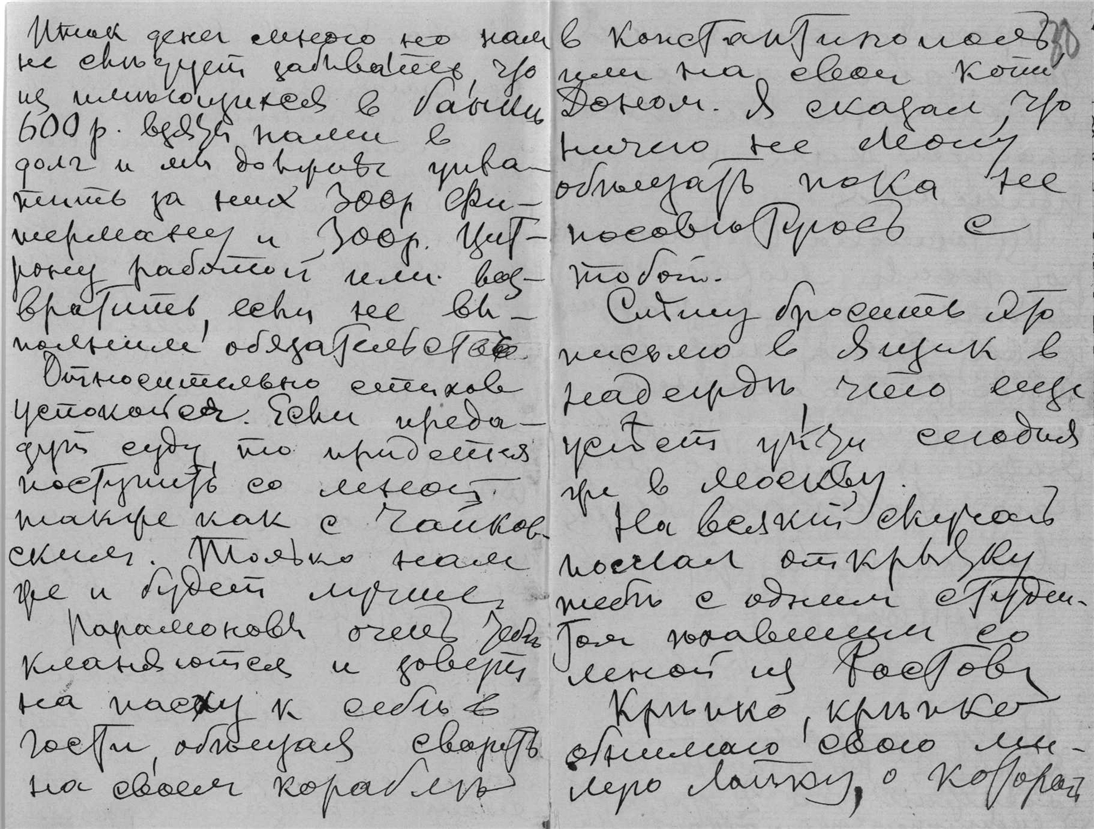 Итак денег много но нам
не слѣдует забывать, что
из имѣющихся в банкѣ
600 р. взяты нами в
долг и мы должны упла-
тить за них 300 р Фи-
терману и 300 р. Цит-
рону работой или воз-
вратить, если не вы-
полним обязательства.
Относительно стихов
успокойся. Если преда-
дут суду, то придется
поступить со мной
также как с Чайков-
ским. Только нам
же и будет лучше.
Парамоновы очень тебѣ
кланяются и зовут
на пасху к себѣ в
гости, обѣщая
на своем кораблѣ
в Константинополь
или на свои копи
Доном. Я сказал, что
ничего не могу
обѣщать пока не
посовѣтуюсь с
тобой.
Спѣшу бросить это
письмо в ящик в
надеждѣ, что еще
успѣет уйти сегодня
же в Москву.
На всякий случай
послал открытку
тебѣ с одним студен-
том ѣхавшим со
мной из Ростова
Крѣпко, крѣпко
обнимаю свою ми-
лую Лайку, о которой
80